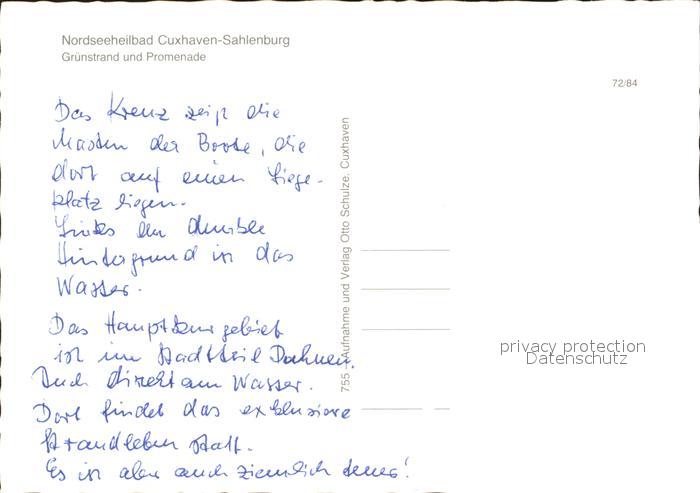 Nordseeheilbad Cuxhaven-Sahlenburg
Grünstrand und Promenade
72/84
Das Kreuz zeigt die
Masten der Boote, die
dort auf einem Liege-
platz liegen.
Links der dunkle
Hintergrund ist das
Wasser.
Das Hauptkurgebiet
ist im Stadtteil Duhnen.
Auch direkt am Wasser.
Dort findet das exklusive
Strandleben statt.
Es ist aber auch ziemlich teuer!
755 – Aufnahme und Verlag Otto Schulze, Cuxhaven
privacy protection
Datenschutz